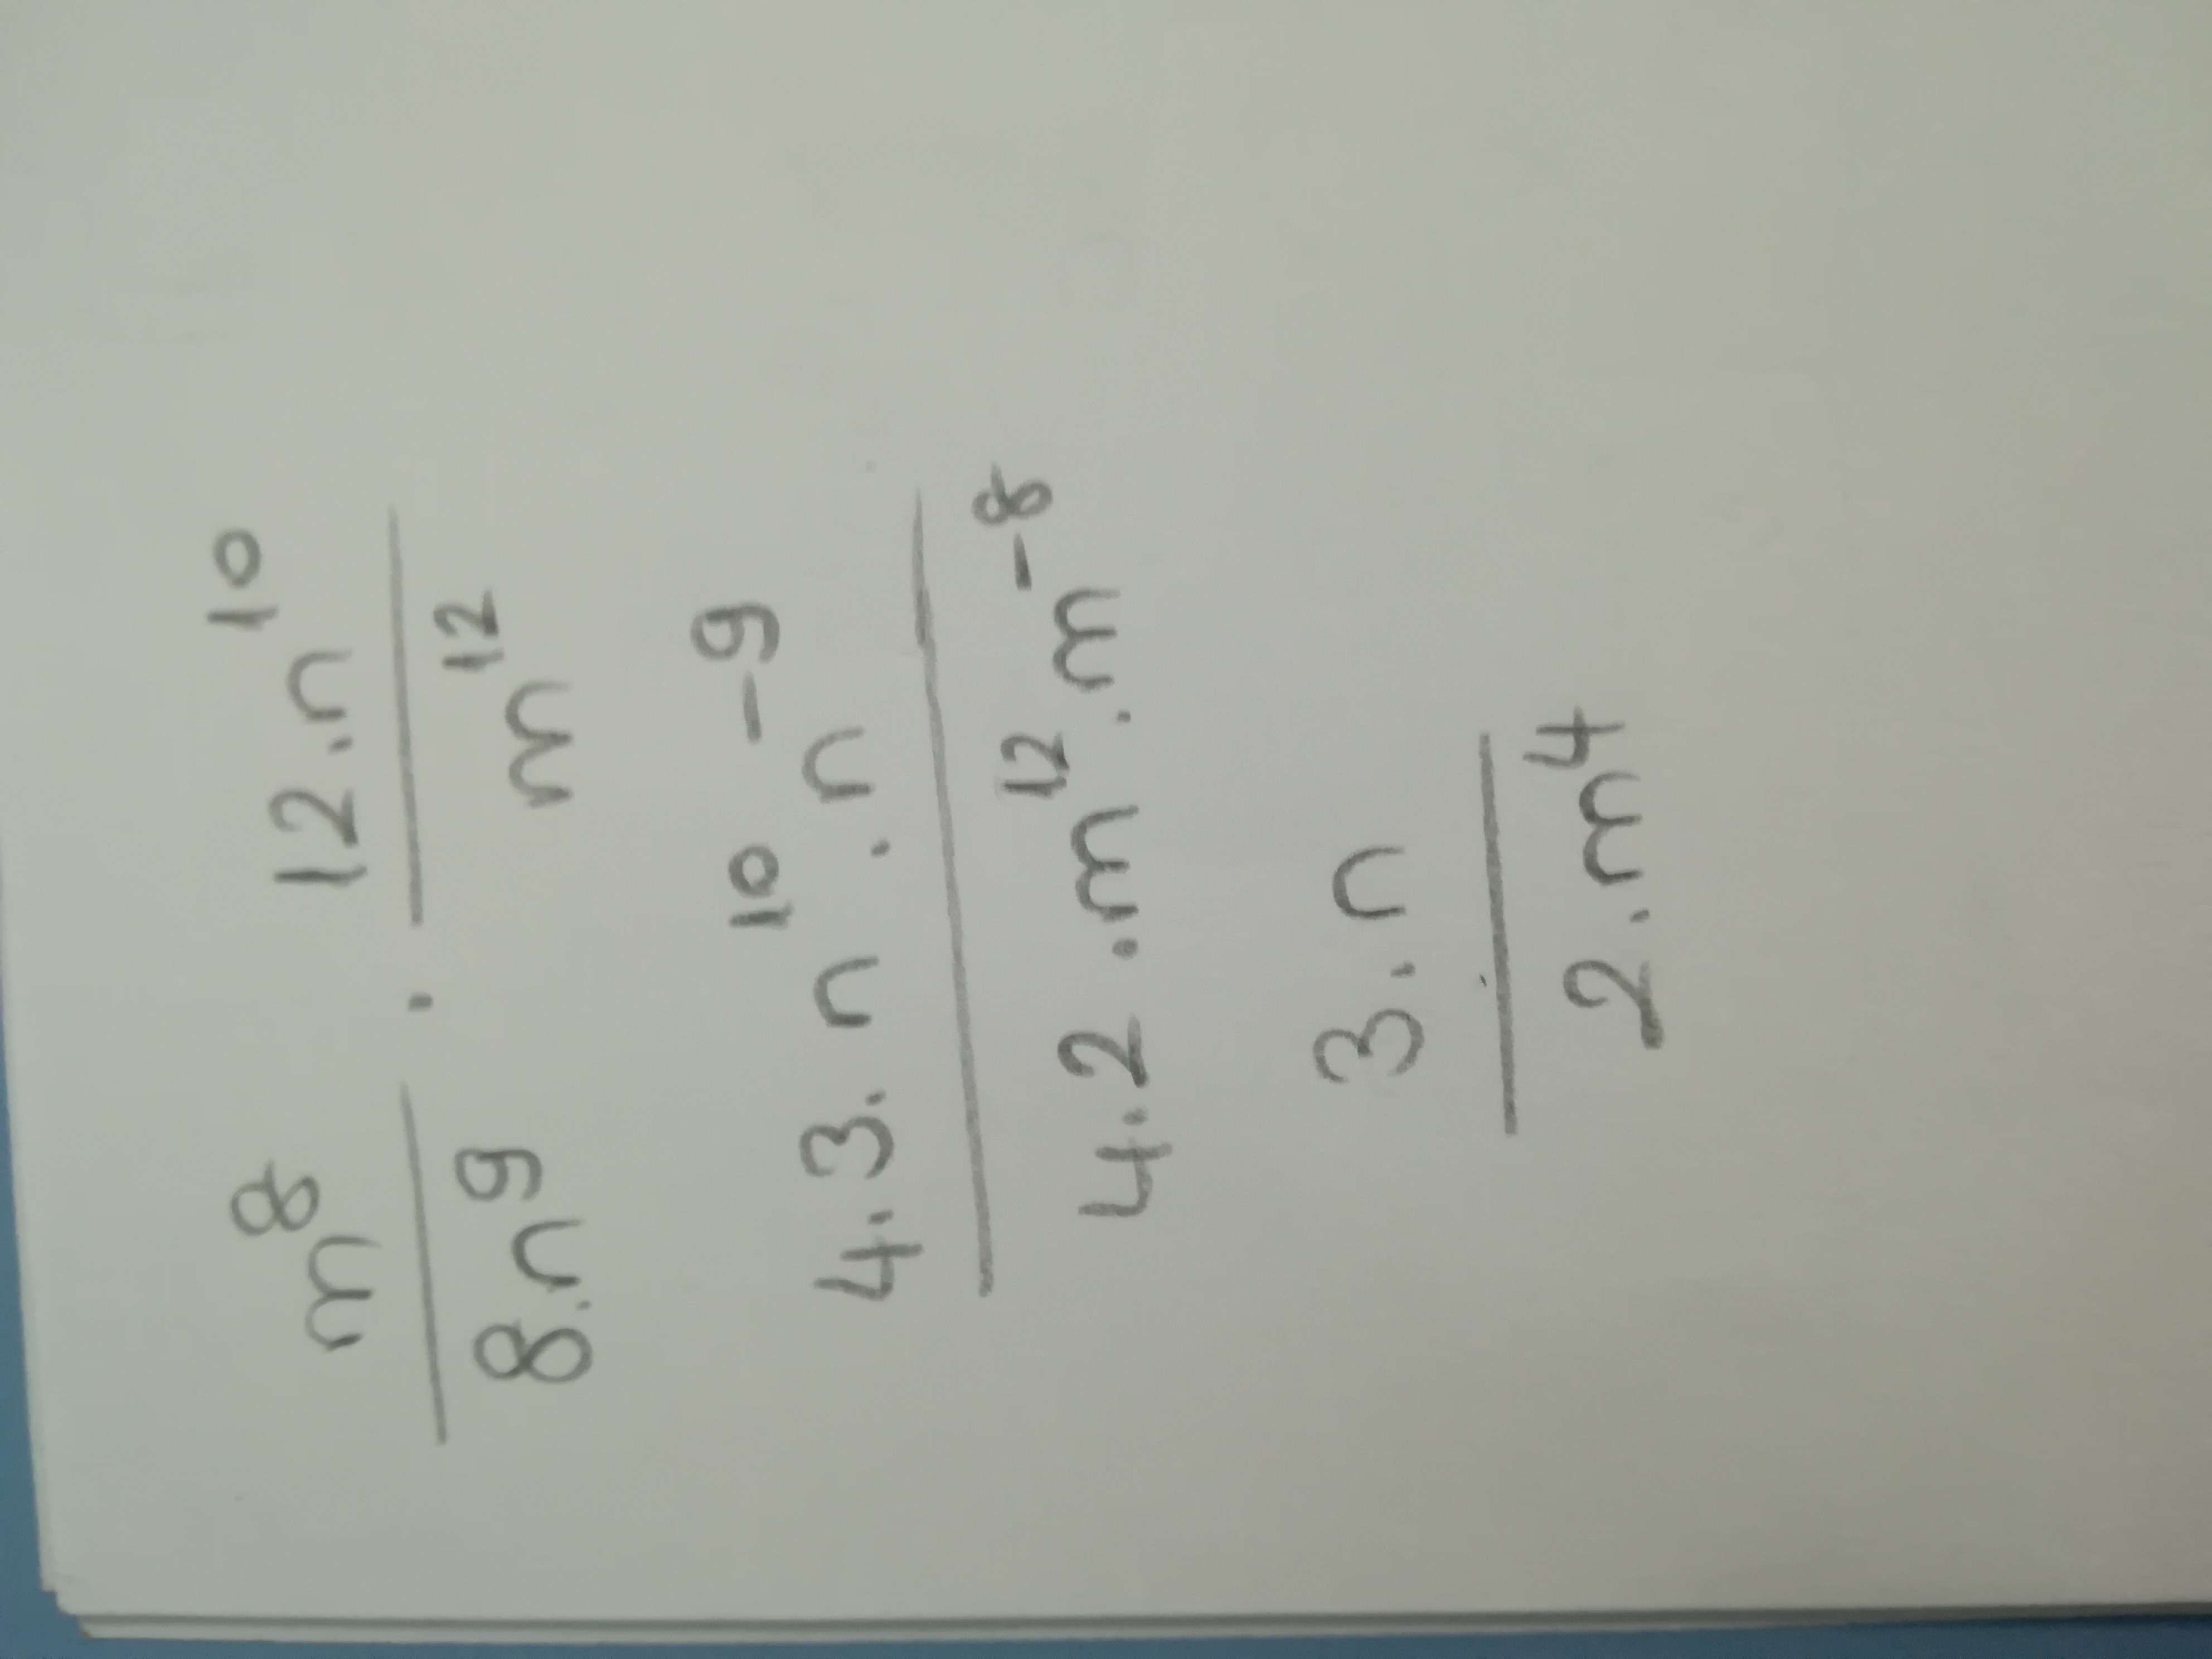 m⁸ 12.n¹⁰
— . —
8.n⁹ m¹²
4.3.n¹⁰.n⁻⁹
—
4.2.m¹².m⁻⁸
3.n
—
2.m⁴